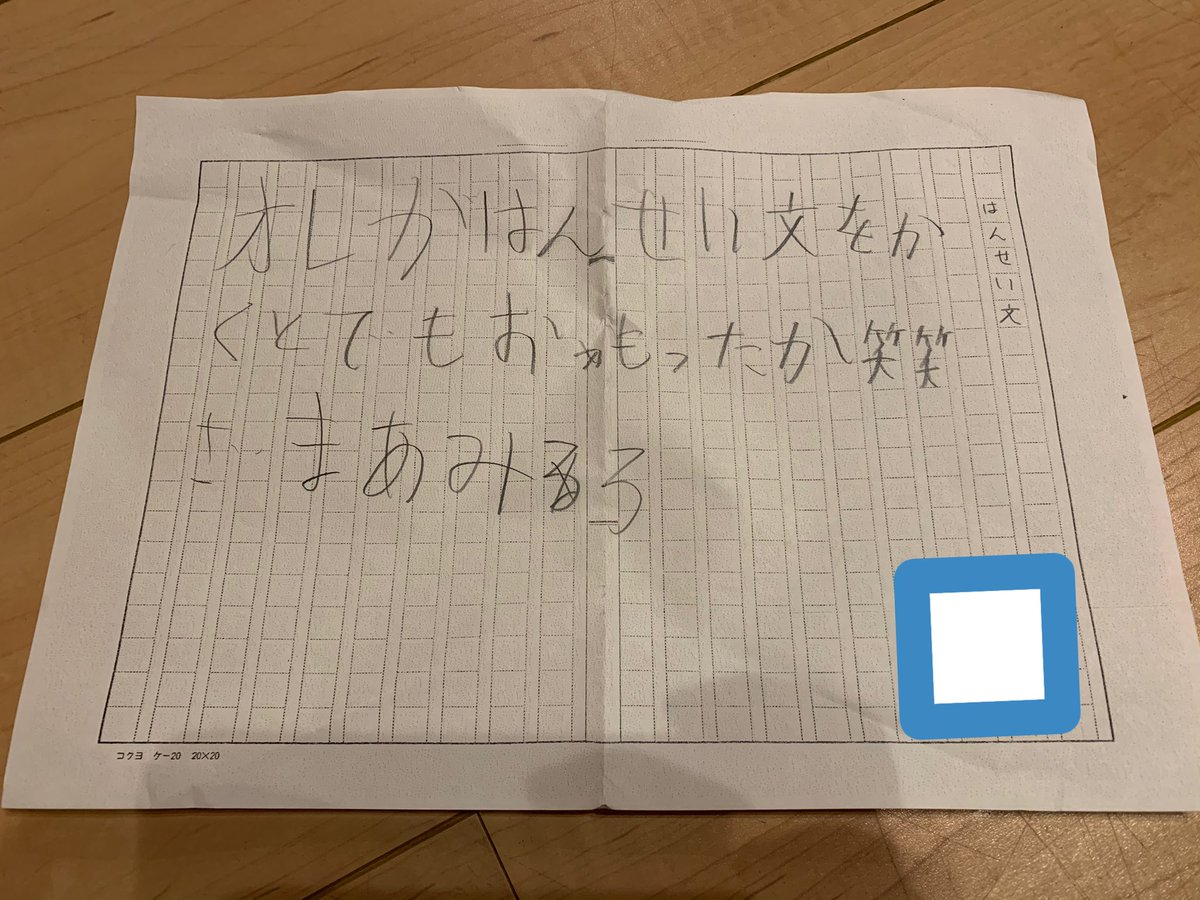 はんせい文
オレがはんせい文をか
くとでもおもったか笑笑
ざまあみろ
コクヨ ケー20 20×20